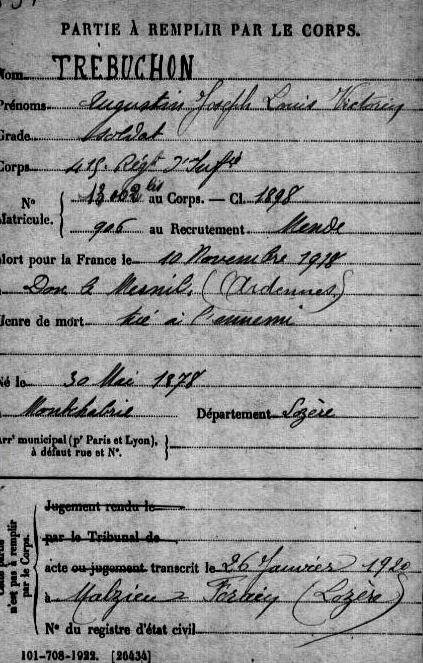 PARTIE À REMPLIR PAR LE CORPS.
Nom TRÉBUCHON
Prénoms Augustin Joseph Louis Victorin
Grade Soldat
Corps 415e Régt d'Infie
N° Matricule. 13.002 bis au Corps. — Cl. 1898
906 au Recrutement Mende
Mort pour la France le 10 Novembre 1918
à Dom le Mesnil, (Ardennes)
Genre de mort tué à l'ennemi
Né le 30 Mai 1878
Département Lozère
Arr' municipal (p' Paris et Lyon),
à défaut rue et N°.
Jugement rendu le
par le Tribunal de
acte ou jugement transcrit le 26 Janvier 1920
à Malzieu Forain (Lozère)
N° du registre d'état civil
Cette partie n'est pas à remplir par le Corps.
101-708-1922. [26434]